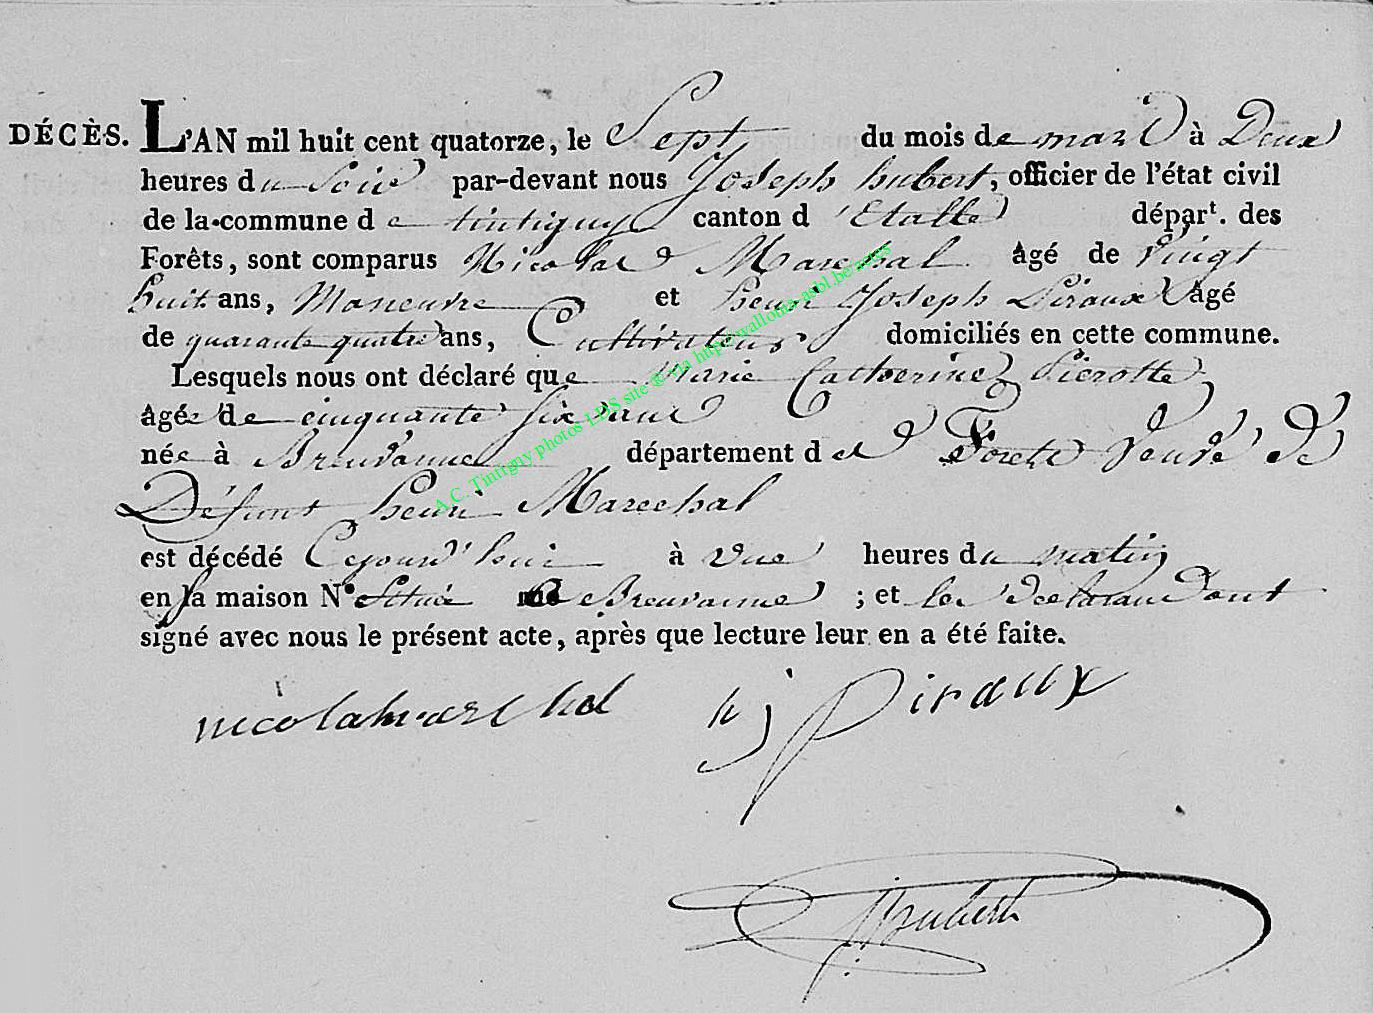 DÉCÈS. L'AN mil huit cent quatorze, le Sept du mois de mars à Deux
heures du Soir par-devant nous Joseph hubert, officier de l'état civil
de la commune de tintigny canton d'Etalle départ. des
Forêts, sont comparus Nicolas Marechal âgé de vingt
huit ans, Maneuvre et henri Joseph Piraux âgé
de quarante quatre ans, Cultivateur domiciliés en cette commune.
Lesquels nous ont déclaré que Marie Catherine Pierotte
âgée de cinquante six ans
née à Breuvanne département des Forets veuve de
Défunt henri Marechal
est décédé Cejourd'hui à une heures du matin
en sa maison N° située Breuvanne ; et les declarans ont
signé avec nous le présent acte, après que lecture leur en a été faite.
nicola marechal h j piraux
J hubert
A.C. Tintigny photos LDS site ® via http://wallonia-asbl.be/actes